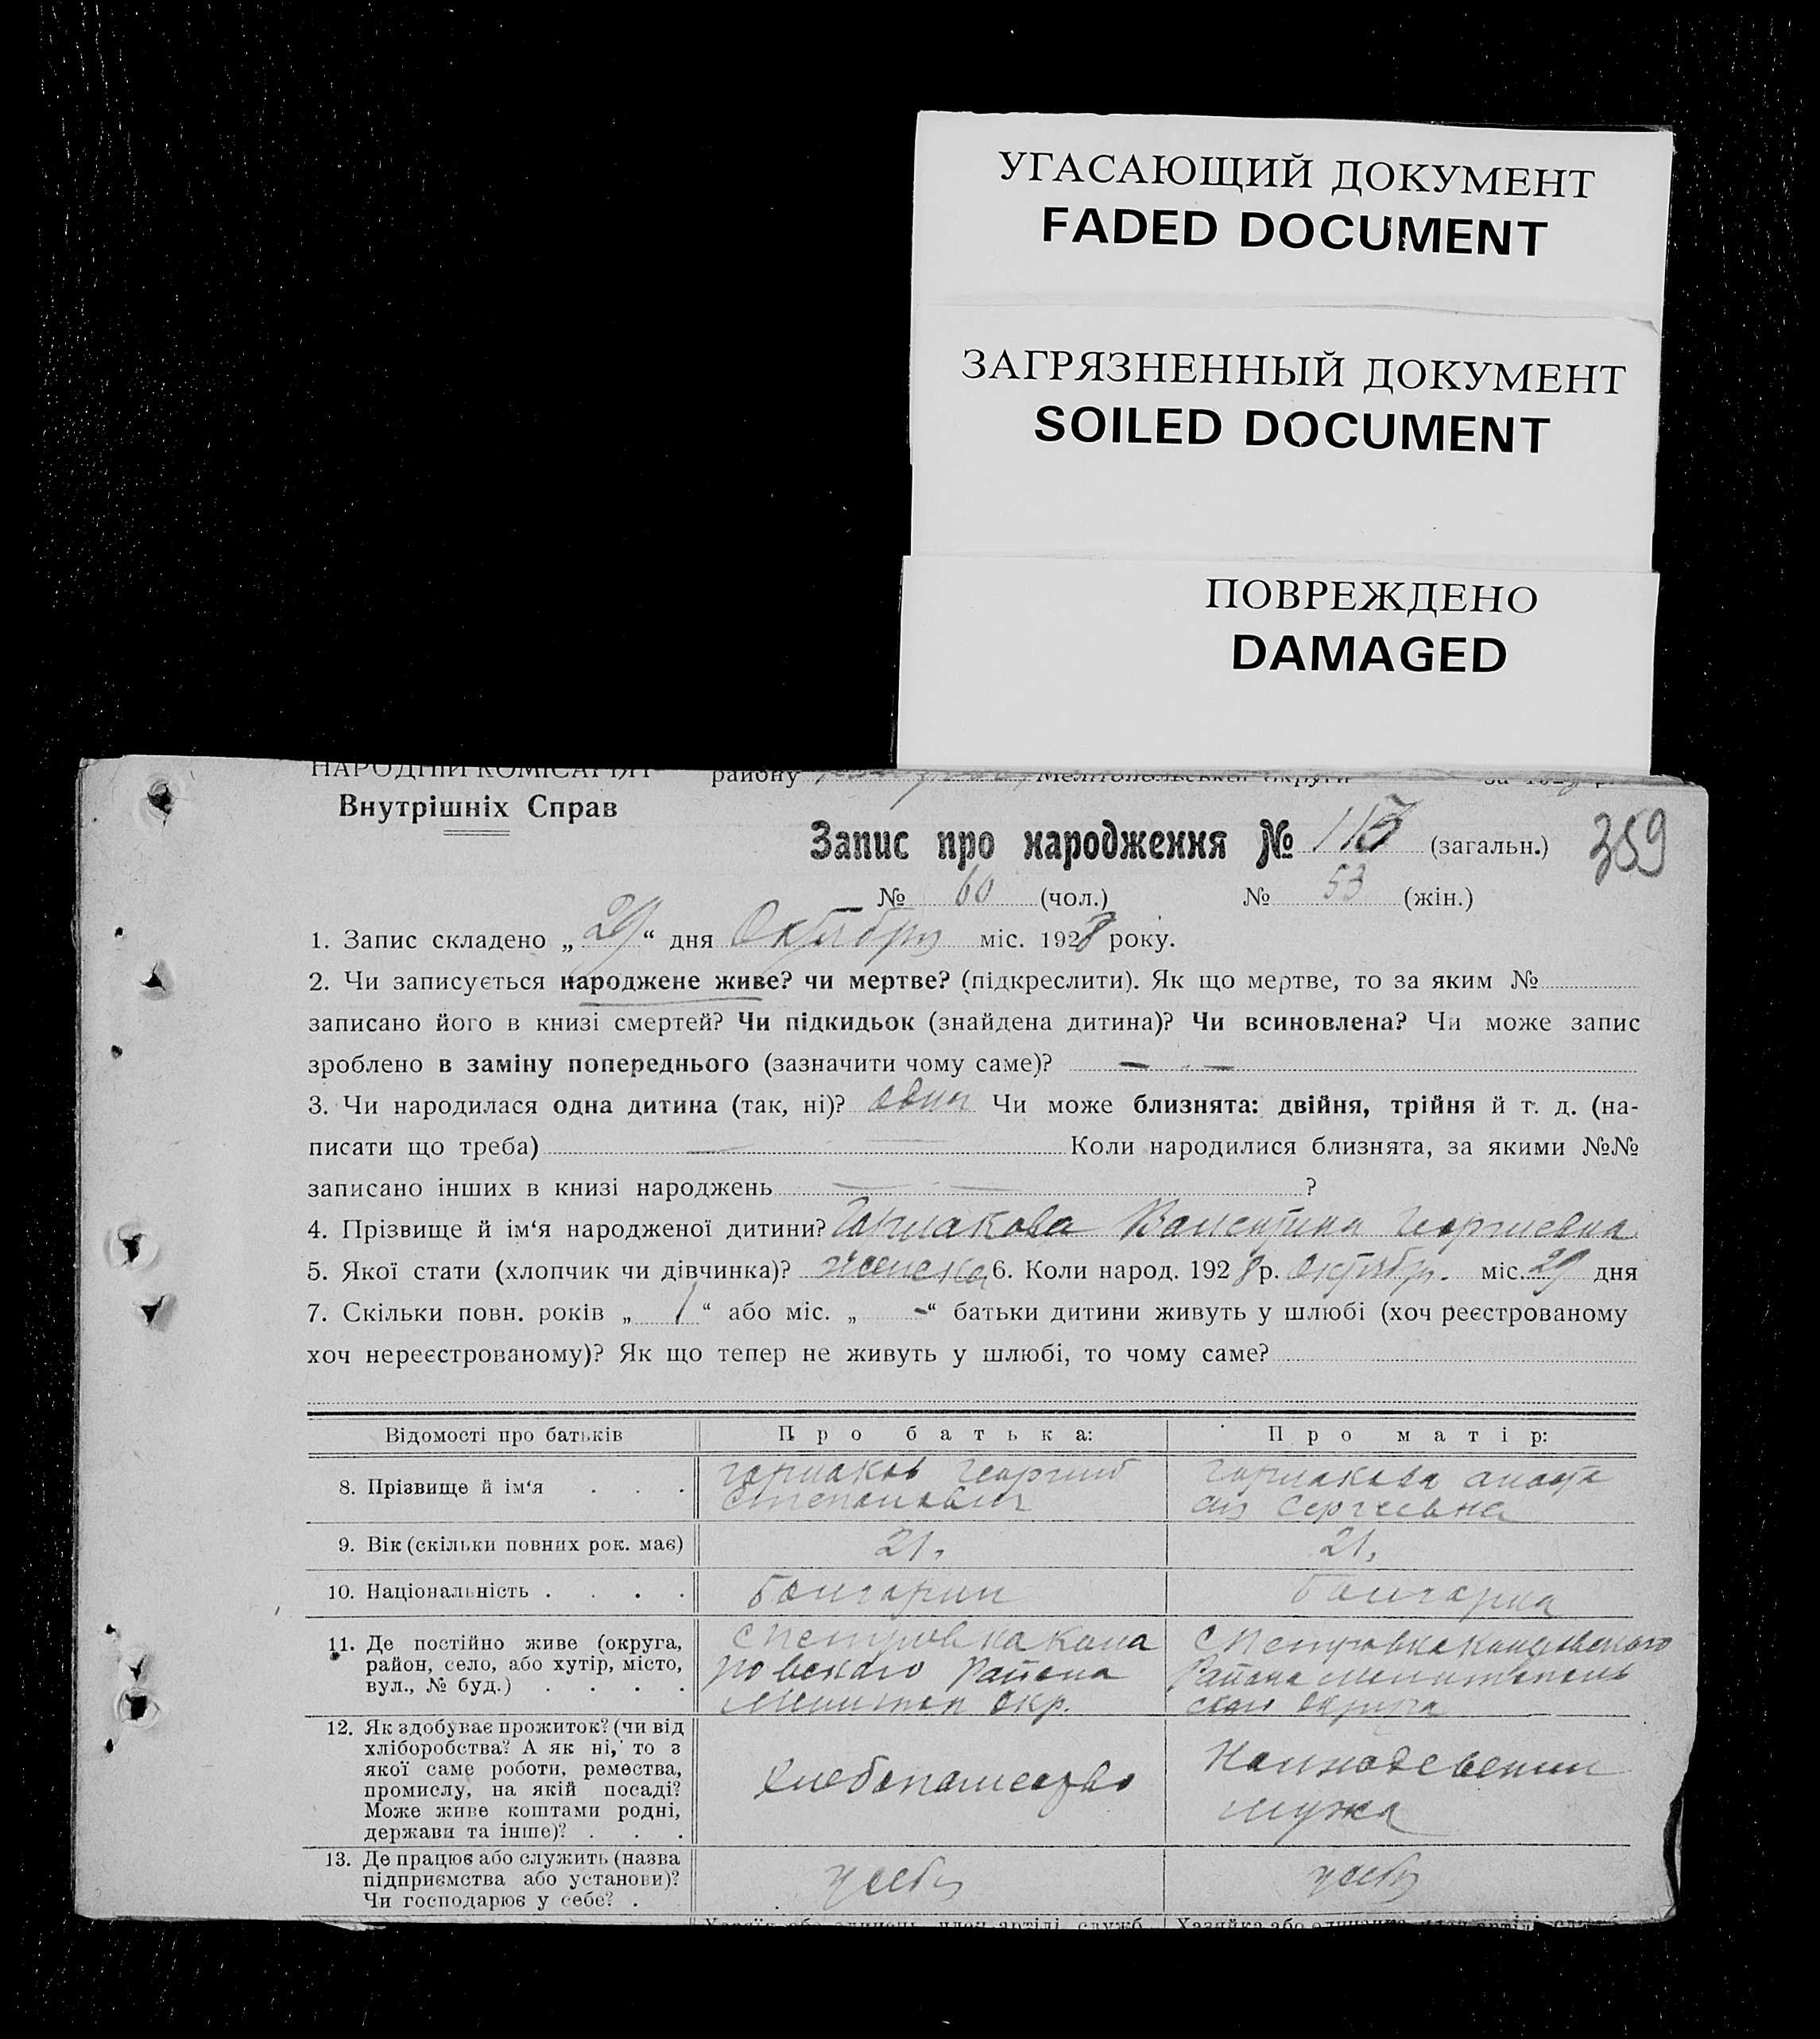 УГАСАЮЩИЙ ДОКУМЕНТ
FADED DOCUMENT
ЗАГРЯЗНЕННЫЙ ДОКУМЕНТ
SOILED DOCUMENT
ПОВРЕЖДЕНО
DAMAGED
району Мелітопольської округи
Внутрішніх Справ
Запис про народження № 113 (загальн.) 359
№ 60 (чол.) № 53 (жін.)
1. Запис складено „ 29 “ дня Октября міс. 1928 року.
2. Чи записується народжене живе? чи мертве? (підкреслити). Як що мертве, то за яким №
записано його в книзі смертей? Чи підкидьок (знайдена дитина)? Чи всиновлена? Чи може запис
зроблено в заміну попереднього (зазначити чому саме)? — —
3. Чи народилася одна дитина (так, ні)? одна Чи може близнята: двійня, трійня й т. д. (на-
писати що треба) — Коли народилися близнята, за якими №№
записано інших в книзі народжень — — ?
4. Прізвище й ім‘я народженої дитини? Гармакова Валентина Георгиевна
5. Якої стати (хлопчик чи дівчинка)? женска 6. Коли народ. 1928 р. Октябр. міс. 29 дня
7. Скільки повн. років „ 1 “ або міс. „ - “ батьки дитини живуть у шлюбі (хоч реєстрованому
хоч нереєстрованому)? Як що тепер не живуть у шлюбі, то чому саме?
Відомості про батьків Про батька: Про матір:
8. Прізвище й ім‘я . . . Гармаков Георгий Гармакова Анаста
Степанович сия Сергеевна
9. Вік (скільки повних рок. має) 21. 21.
10. Національність . . . . Болгарин Болгарка
11. Де постійно живе (округа, с Петровка
район, село, або хутір, місто, ровского Района
вул., № буд.) . . . . Мелитоп окр.
с Петровка
Района Мелитополь
ского Округа
12. Як здобуває прожиток? (чи від
хліборобства? А як ні, то з
якої саме роботи, ремества,
промислу, на якій посаді?
Може живе коштами родні,
держави та інше)? . . .
хлебопашество
На иждевении
мужа
13. Де працює або служить (назва
підприємства або установи)?
Чи господарює у себе? .
у себя у себя